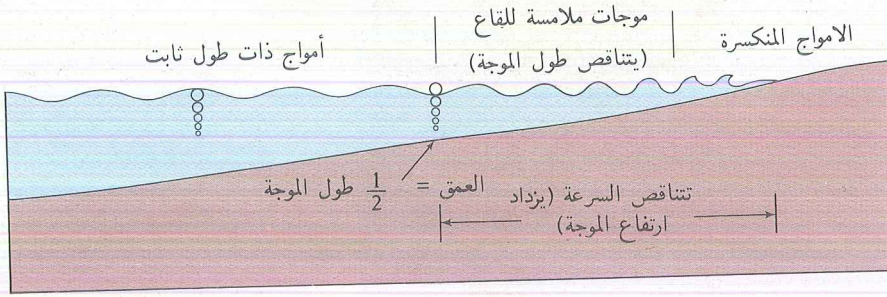 الامواج المنكسرة
موجات ملامسة للقاع
(يتناقص طول الموجة)
أمواج ذات طول ثابت
العمق = 1/2 طول الموجة
تتناقص السرعة (يزداد
ارتفاع الموجة)